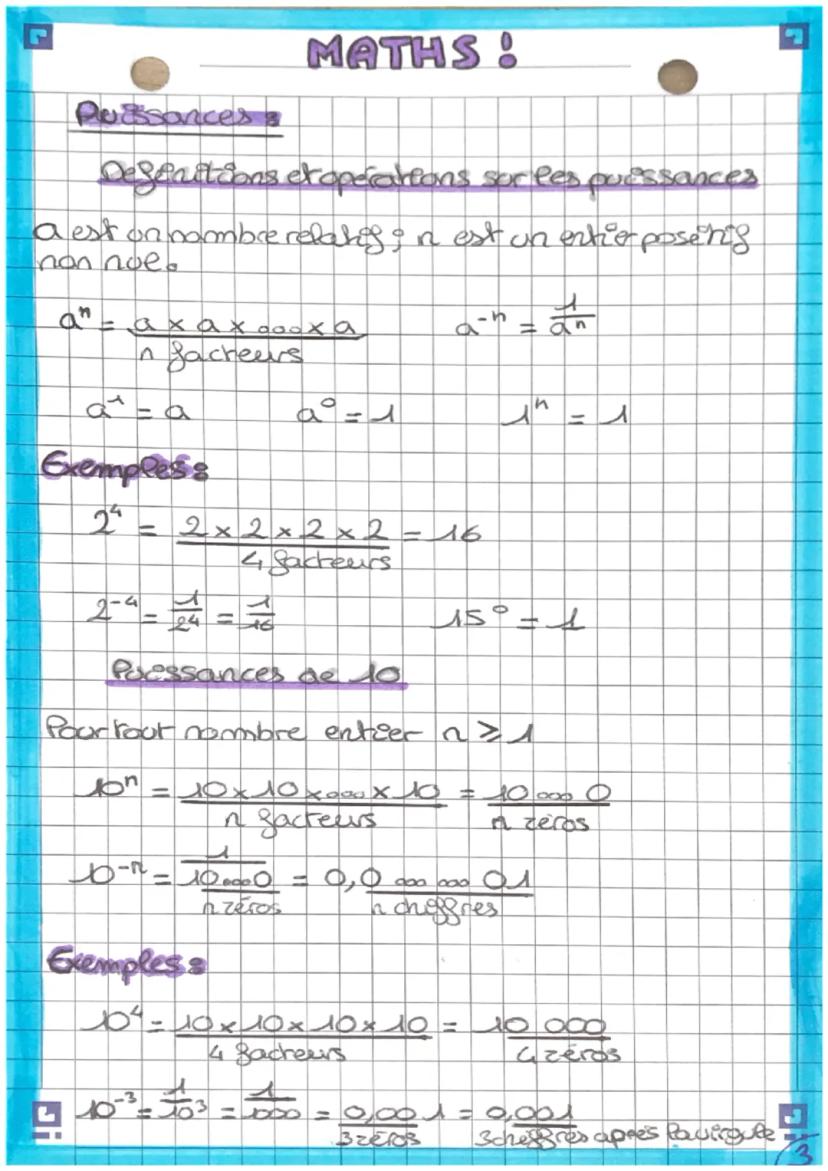 MATHS !
Puissances :
Définitions et opérations sur les puissances
a est un nombre relatif ; n est un entier positif
non nul.
aⁿ = a x a x ... x a    a⁻ⁿ = 1/aⁿ
n facteurs
a¹ = a    a⁰ = 1    1ⁿ = 1
Exemples :
2⁴ = 2 x 2 x 2 x 2 = 16
4 facteurs
2⁻⁴ = 1/2⁴ = 1/16    15⁰ = 1
Puissances de 10
Pour tout nombre entier n ⩾ 1
10ⁿ = 10 x 10 x ... x 10 = 10 ... 0
n facteurs    n zéros
10⁻ⁿ = 1/10...0 = 0,0 ... ... 01
n zéros    n chiffres
Exemples :
10⁴ = 10 x 10 x 10 x 10 = 10 000
4 facteurs    4 zéros
10⁻³ = 1/10³ = 1/1000 = 0,001 = 0,001
3 zéros    3 chiffres après la virgule
3